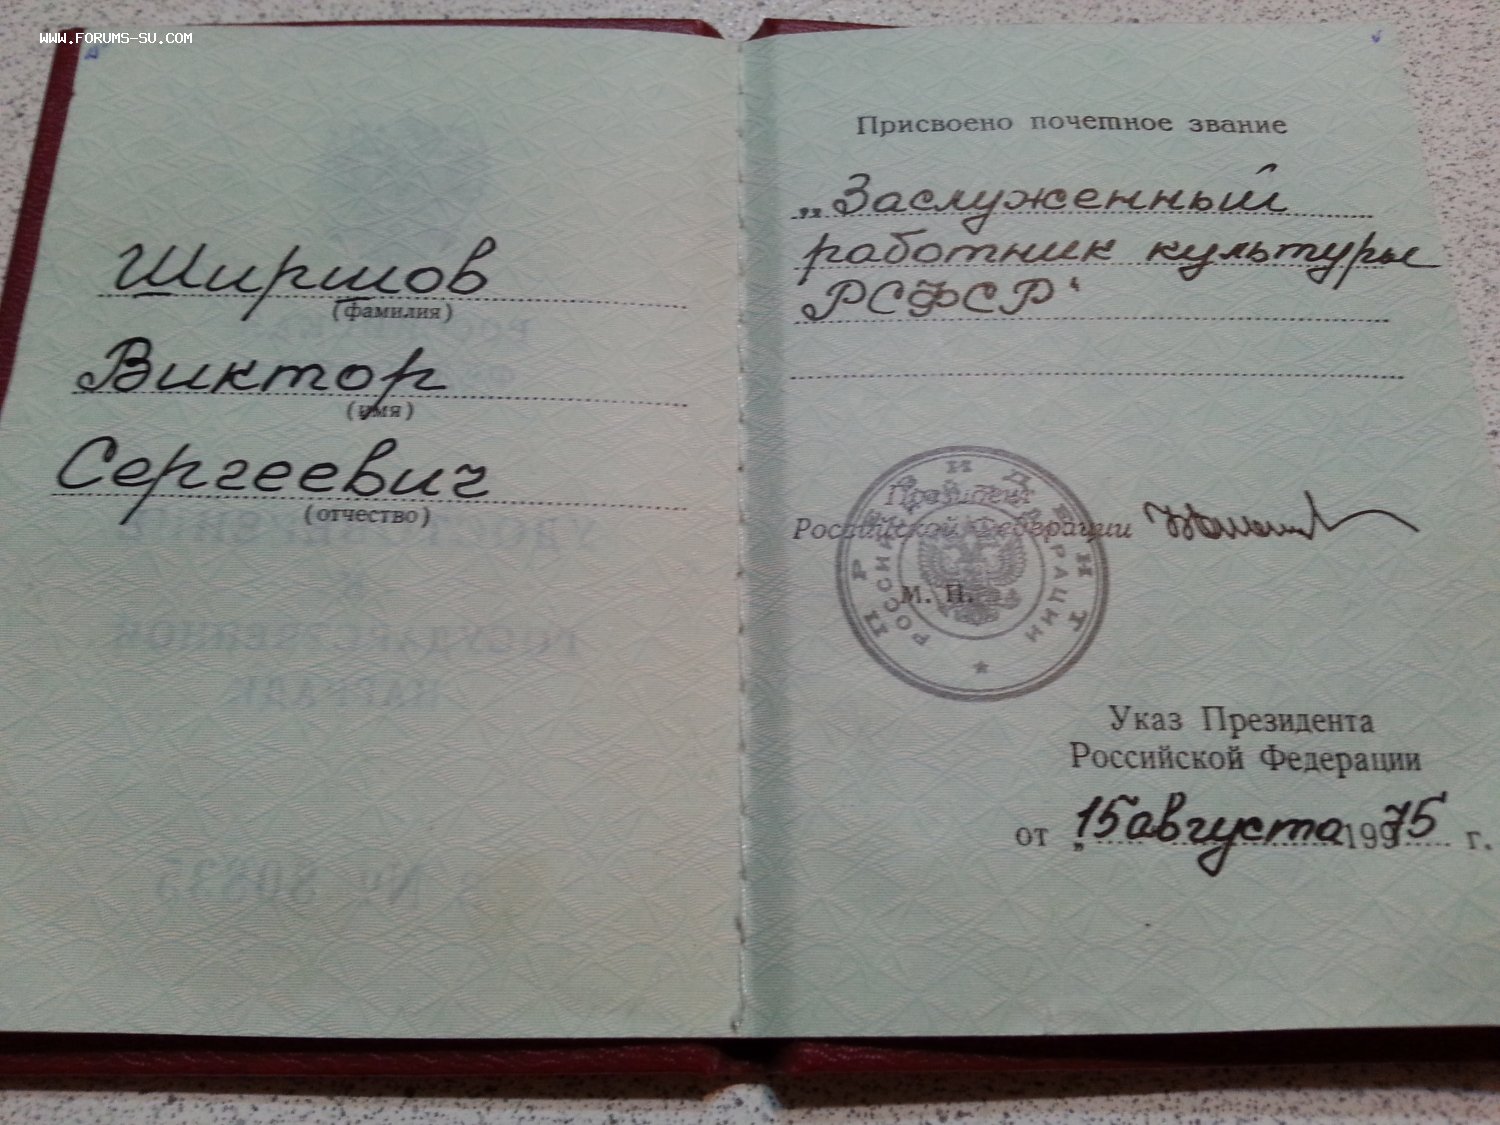 WWW.FORUMS-SU.COM
Ширшов
(фамилия)
Виктор
(имя)
Сергеевич
(отчество)
Присвоено почетное звание
„Заслуженный
работник культуры
РСФСР“
Президент
Российской Федерации
М. П.
ПРЕЗИДЕНТ
РОССИЙСКОЙ ФЕДЕРАЦИИ
Указ Президента
Российской Федерации
от „15 августа 19975 г.